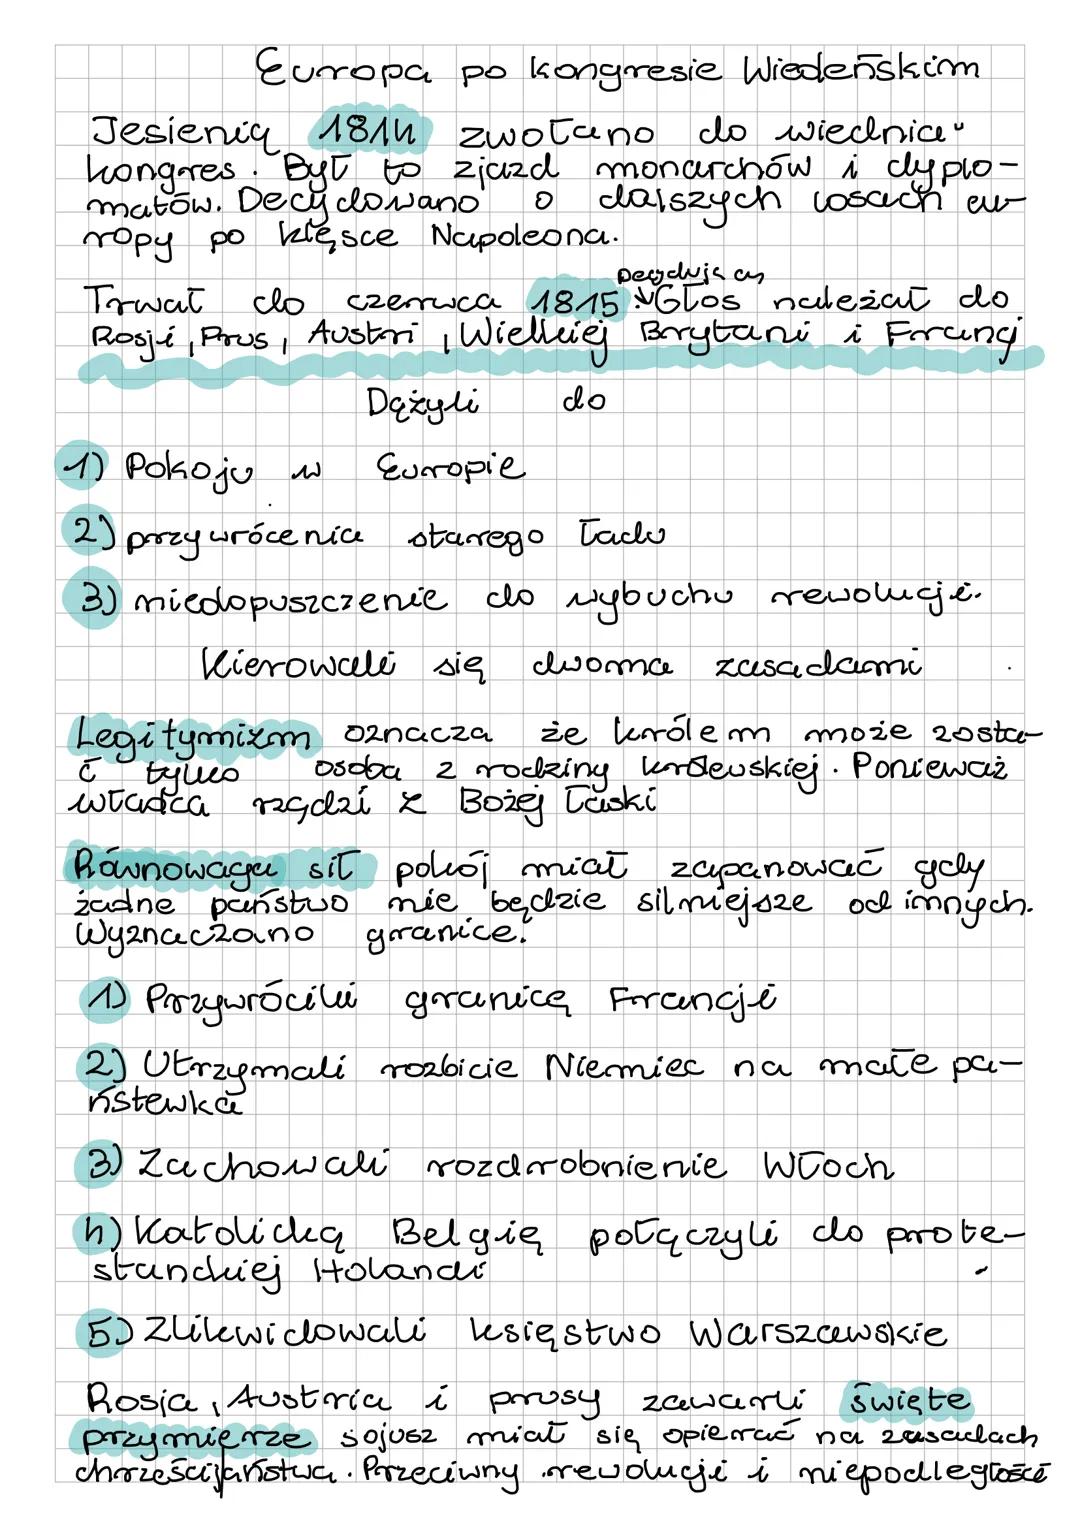 Europa po kongresie Wiedeńskim
Jesienią 1814 zwołano do wiednia
kongres. Był to zjazd monarchów i dyplo-
matów. Decydowano o dalszych losach eu-
ropy po klęsce Napoleona.
Decydując
Trwał do czerwca 1815. Głos należał do
Rosji, Prus, Austri, Wielkiej Brytani i Francj
Dążyli do
1) Pokoju w Europie
2) przywrócenia starego ładu
3) niedopuszczenie do wybuchu rewolucji.
Kierowali się dwoma zasadami
Legitymizm oznacza że królem może zosta-
ć tylko osoba z rodziny królewskiej. Ponieważ
władca rządzi z Bożej łaski
Równowaga sił pokój miał zapanować gdy
żadne państwo nie będzie silniejsze od innych.
Wyznaczono granice.
1) Przywrócili granicę Francji
2) Utrzymali rozbicie Niemiec na małe pa-
ństewka
3) Zachowali rozdrobnienie Włoch
4) Katolicką Belgię połączyli do prote-
stanckiej Holandi
5) Zlikwidowali księstwo Warszawskie
Rosja, Austria i prusy zawarli święte
przymierze sojusz miał się opierać na zasadach
chrześcijaństwa. Przeciwny rewolucji i niepodległości